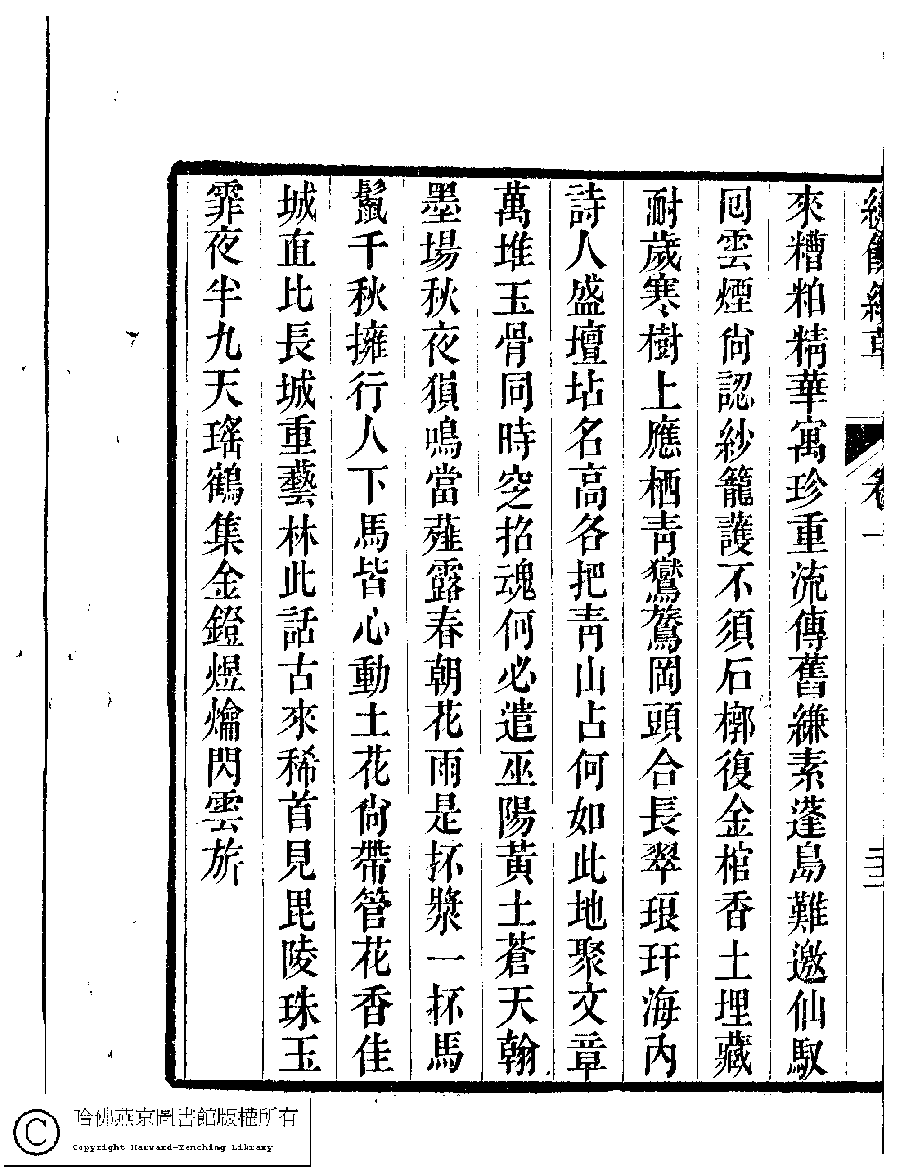 卷一
來糟粕精華寓珍重流傳舊縑素蓬島難邀仙馭
囘雲煙尙認紗籠護不須石槨復金棺香土埋藏
耐歲寒樹上應栖靑鸞鶩岡頭合長翠琅玕海內
詩人盛壇坫名高各把靑山占何如此地聚文章
萬堆玉骨同時窆招魂何必遣巫陽黃土蒼天翰
墨場秋夜猿鳴當薤露春朝花雨是抔漿一抔馬
鬣千秋擁行人下馬皆心動土花尙帶管花香佳
城直比長城重藝林此話古來稀首見毘陵珠玉
霏夜半九天瑤鶴集金鐙煜爚閃雲旂
哈佛燕京圖書館版權所有
Copyright Harvard-Yenching Library